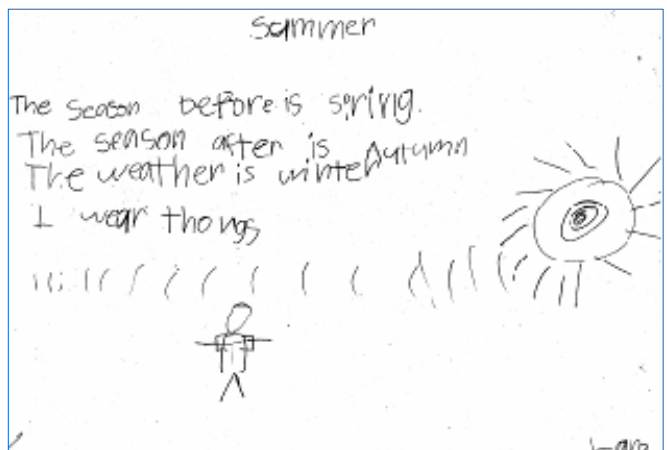 Summer
The season before is spring.
The season after is Autumn
The weather is winter
I wear thongs